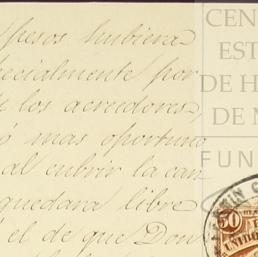 pesos hubiera
pecialmente por
los acreedores,
mas oportuno
al cubrir la can
quedara libre
el de que Don
CEN
EST
DE H
DE M
FUN
50
UNIDO